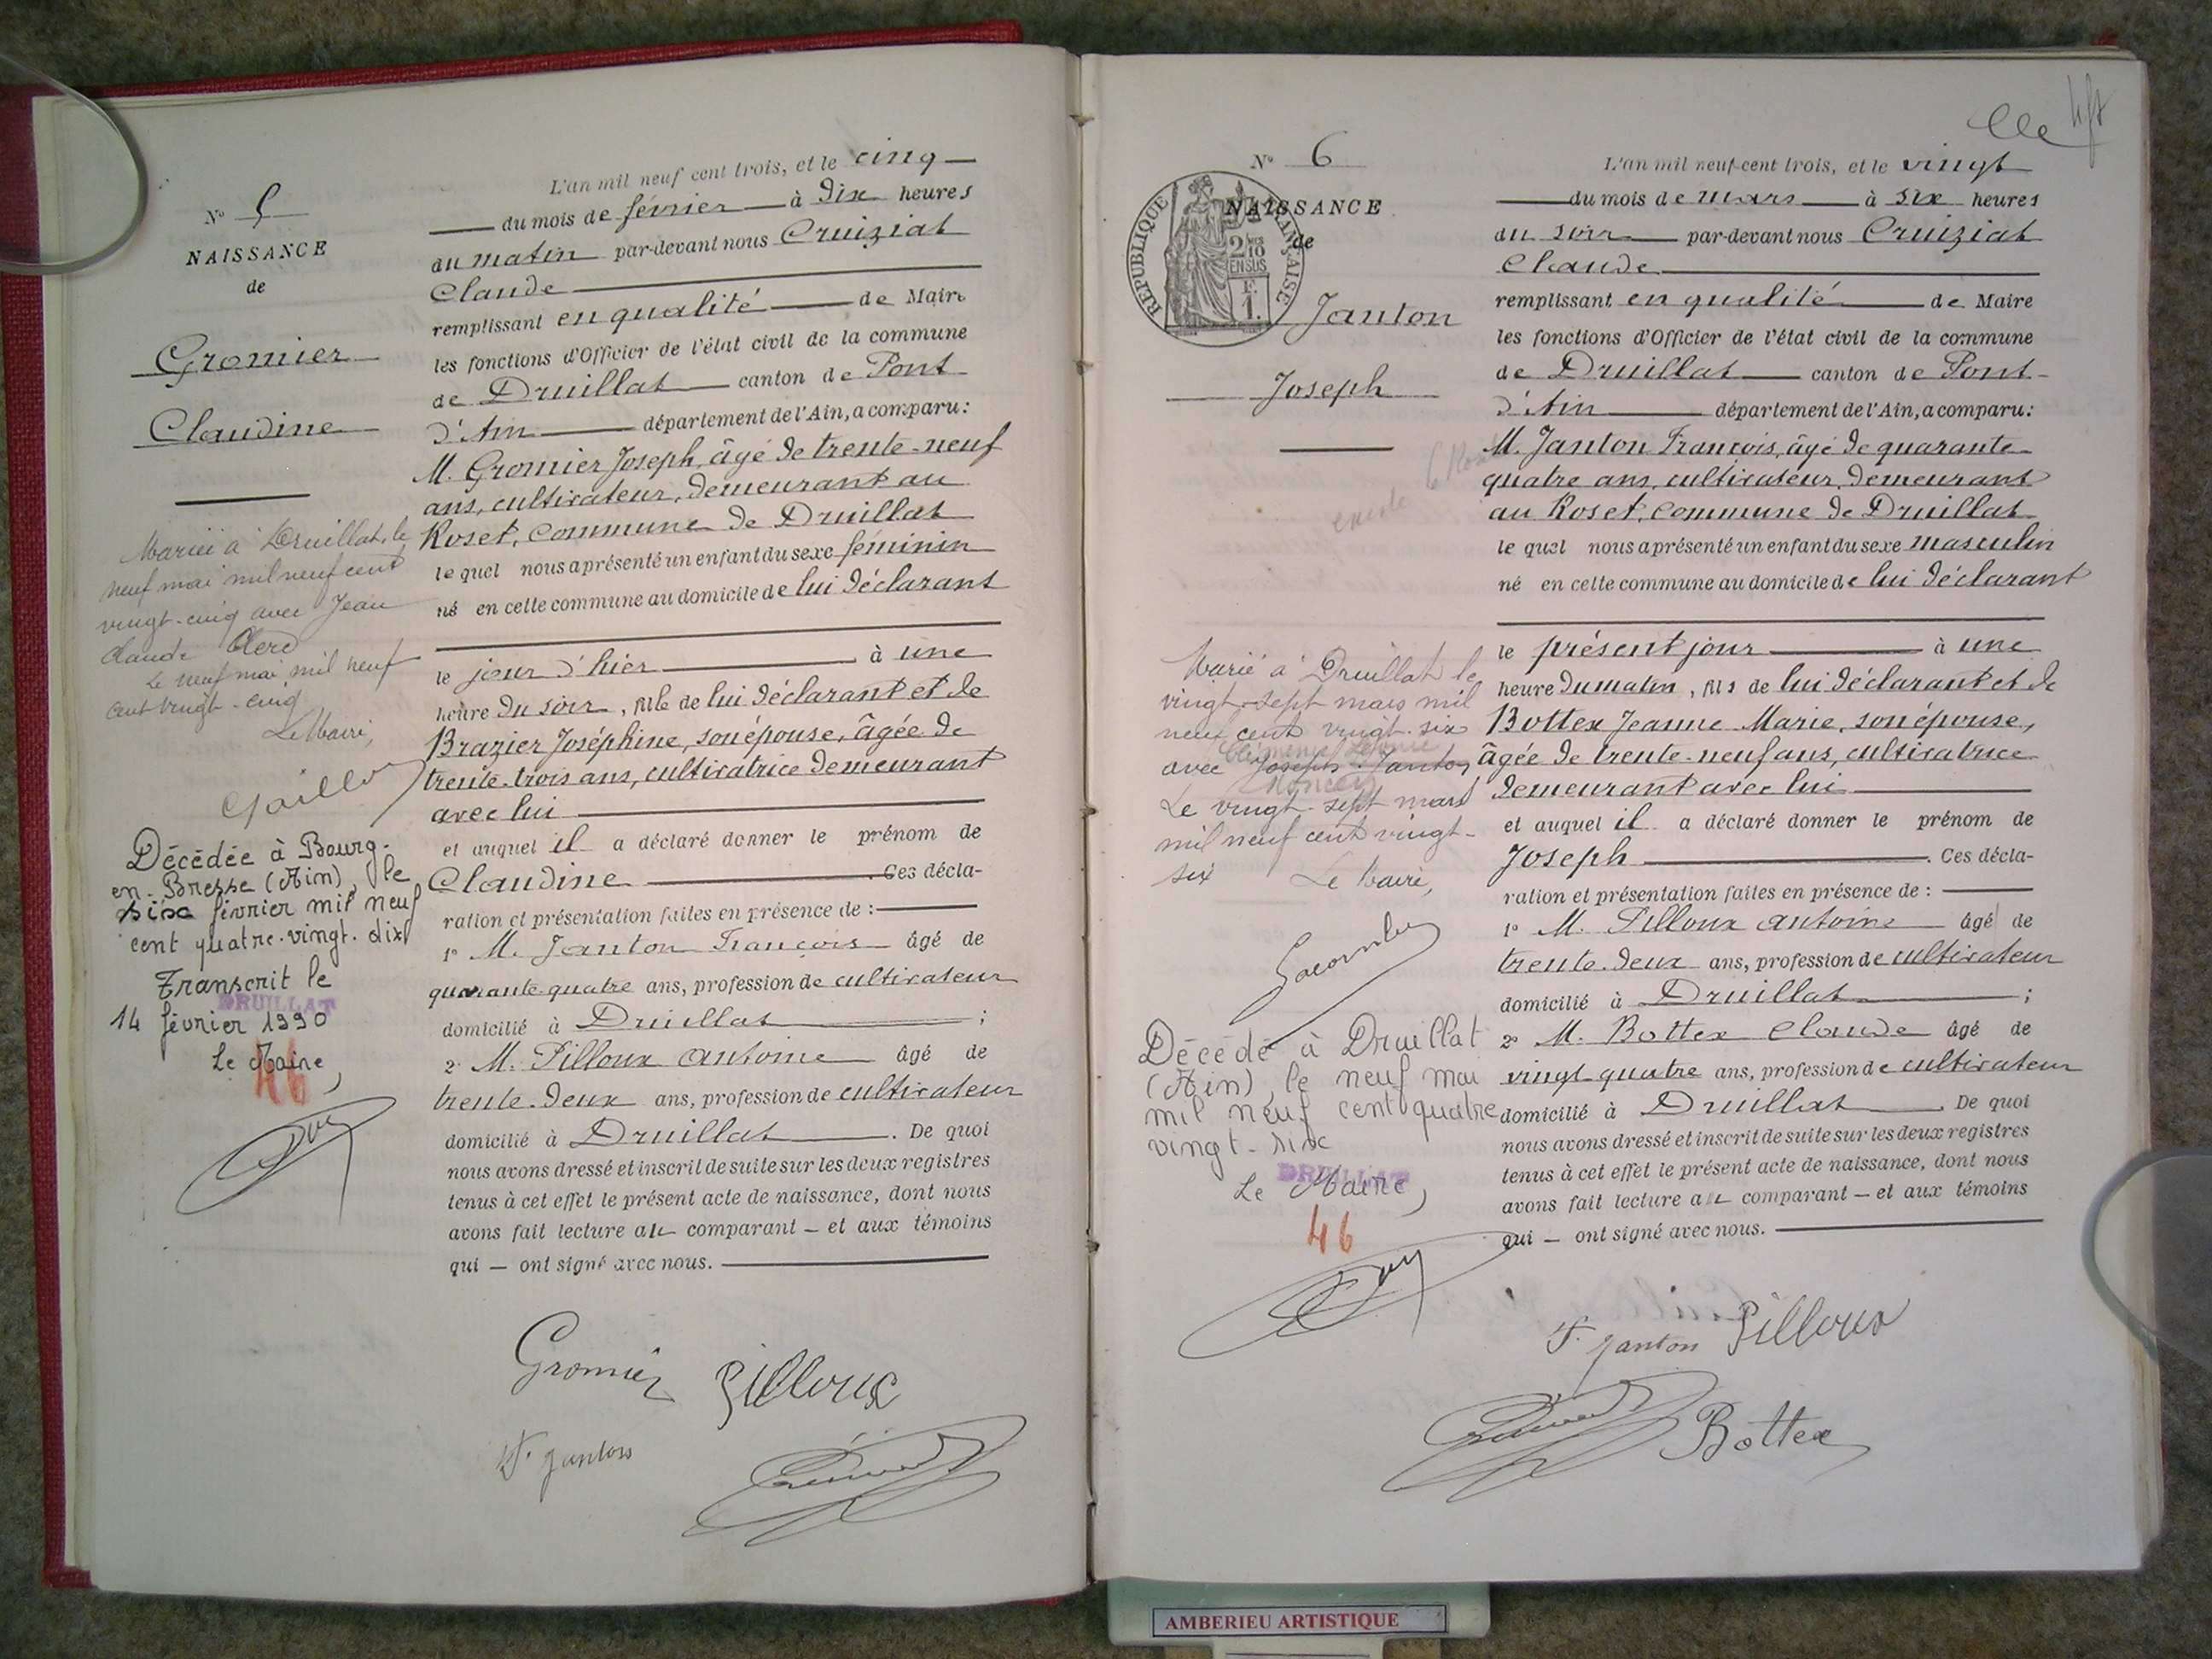 N° 5
NAISSANCE
de
Gromier
Claudine
Mariée à Druillat, le
neuf mai mil neuf cent
vingt-cinq avec Jean
Claude Clerc
Le neuf mai mil neuf
cent vingt-cinq
Le Maire,
Décédée à Bourg-
en-Bresse (Ain), le
six février mil neuf
cent quatre-vingt-dix
Transcrit le
DRUILLAT
14 février 1990
Le Maire,
46
L'an mil neuf cent trois, et le cinq
du mois de février à dix heures
du matin par-devant nous Cruiziat
Claude
remplissant en qualité de Maire
les fonctions d'Officier de l'état civil de la commune
de Druillat canton de Pont
d'Ain département de l'Ain, a comparu:
M. Gromier Joseph, âgé de trente-neuf
ans, cultivateur, demeurant au
Roset, commune de Druillat
le quel nous a présenté un enfant du sexe féminin
né en cette commune au domicile de lui déclarant
le jour d'hier à une
heure du soir, fille de lui déclarant et de
Brazier Joséphine, son épouse, âgée de
trente-trois ans, cultivatrice demeurant
avec lui
et auquel il a déclaré donner le prénom de
Claudine . Ces décla-
ration et présentation faites en présence de :
1° M. Janton François âgé de
quarante-quatre ans, profession de cultivateur
domicilié à Druillat ;
2° M. Pilloux Antoine âgé de
trente-deux ans, profession de cultivateur
domicilié à Druillat . De quoi
nous avons dressé et inscrit de suite sur les deux registres
tenus à cet effet le présent acte de naissance, dont nous
avons fait lecture au comparant — et aux témoins
qui — ont signé avec nous.
Gromier Pilloux
F. Janton
N° 6
NAISSANCE
de
RÉPUBLIQUE FRANÇAISE
2/10
EN SUS
1 F.
Janton
Joseph
Marié à Druillat le
vingt-sept mars mil
neuf cent vingt-six
avec Joseph Janton
Le vingt-sept mars
mil neuf cent vingt-
six Le Maire,
Décédé à Druillat
(Ain), le neuf mai
mil neuf cent quatre
vingt-six
DRUILLAT
Le Maire,
46
L'an mil neuf cent trois, et le vingt
du mois de mars à six heures
du soir par-devant nous Cruiziat
Claude
remplissant en qualité de Maire
les fonctions d'Officier de l'état civil de la commune
de Druillat canton de Pont-
d'Ain département de l'Ain, a comparu:
M. Janton François, âgé de quarante-
quatre ans, cultivateur, demeurant
au Roset, commune de Druillat
le quel nous a présenté un enfant du sexe masculin
né en cette commune au domicile de lui déclarant
le présent jour à une
heure du matin, fils de lui déclarant et de
Bottex Jeanne Marie, son épouse,
âgée de trente-neuf ans, cultivatrice
demeurant avec lui
et auquel il a déclaré donner le prénom de
Joseph . Ces décla-
ration et présentation faites en présence de :
1° M. Pilloux Antoine âgé de
trente-deux ans, profession de cultivateur
domicilié à Druillat ;
2° M. Bottex Claude âgé de
vingt-quatre ans, profession de cultivateur
domicilié à Druillat . De quoi
nous avons dressé et inscrit de suite sur les deux registres
tenus à cet effet le présent acte de naissance, dont nous
avons fait lecture au comparant — et aux témoins
qui — ont signé avec nous.
F. Janton Pilloux
Bottex
AMBERIEU ARTISTIQUE